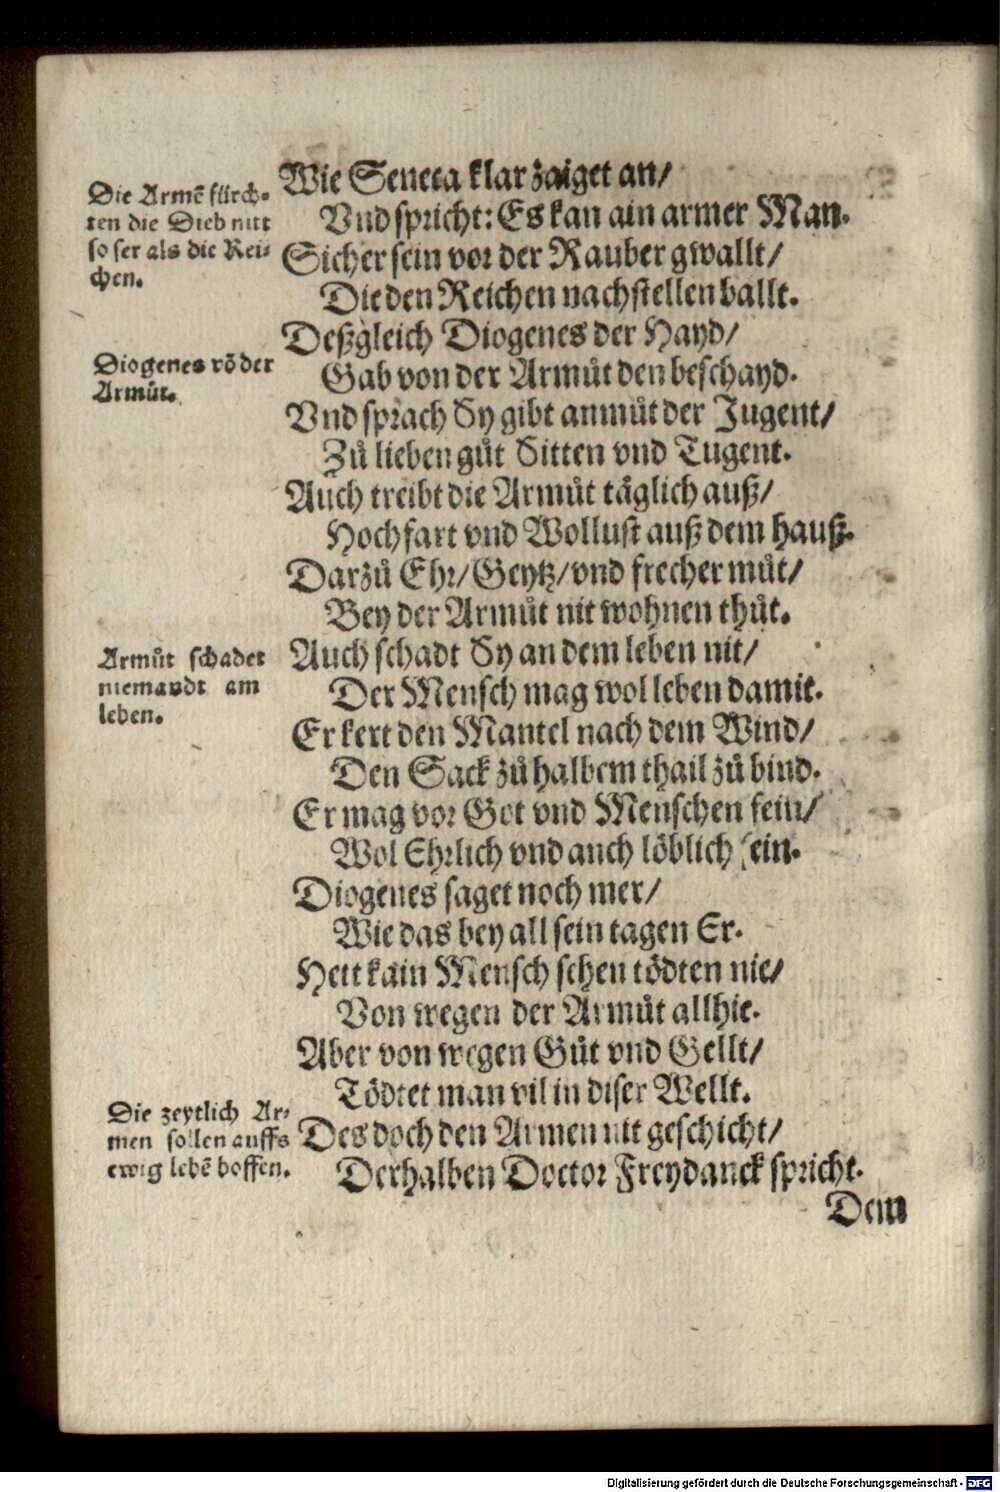 Die Armē fürch-
ten die Dieb nitt
so ser als die Rei-
chen.
Wie Seneca klar zaiget an/
Vnd spricht: Es kan ain armer Man.
Sicher sein vor der Rauber gwallt/
Die den Reichen nachstellen ballt.
Deßgleich Diogenes der Hayd/
Diogenes vō der
Armůt.
Gab von der Armůt den beschayd.
Vnd sprach Sy gibt anmůt der Jugent/
Zů lieben gůt Sitten vnd Tugent.
Auch treibt die Armůt täglich auß/
Hochfart vnd Wollust auß dem hauß.
Darzů Ehr/Geytz/vnd frecher můt/
Bey der Armůt nit wohnen thůt.
Armůt schadet
niemandt am
leben.
Auch schadt Sy an dem leben nit/
Der Mensch mag wol leben damit.
Er kert den Mantel nach dem Wind/
Den Sack zů halbem thail zů bind.
Er mag vor Got vnd Menschen fein/
Wol Ehrlich vnd auch löblich sein.
Diogenes saget noch mer/
Wie das bey all sein tagen Er.
Hett kain Mensch sehen tödten nie/
Von wegen der Armůt allhie.
Aber von wegen Gůt vnd Gellt/
Tödtet man vil in diser Wellt.
Die zeytlich Ar-
men sollen auffs
ewig lebē hoffen.
Des doch den Armen nit geschicht/
Derhalben Doctor Freydanck spricht.
Dem
Digitalisierung gefördert durch die Deutsche Forschungsgemeinschaft - DFG